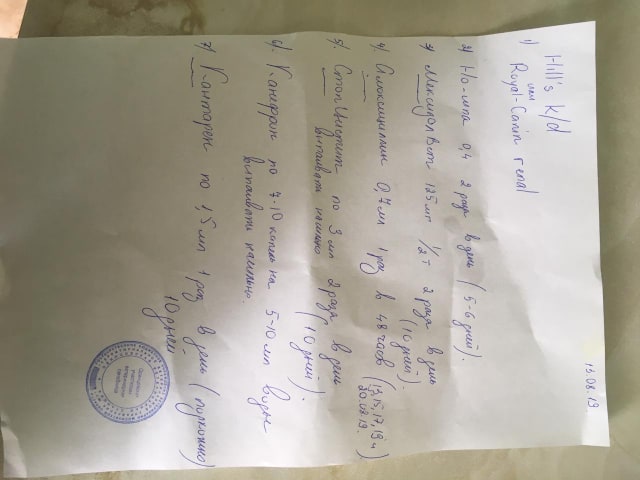 13.08.19.
Hill's k/d
1) или
Royal-Canin renal
2) Но-шпа 0,4 2 раза в день (5-6 дней).
3) Мексидол Вет 125 мг 1/2 т 2 раза в день
(10 дней)
4) Амоксициллин 0,7 мл 1 раз в 48 часов (13,15,17,19 и
20.08.19.)
5) Стоп Цистит по 3 мл 2 раза в день
выпаивать насильно (10 дней).
6) Канефрон по 7-10 капель на 5-10 мл воды
выпаивать насильно.
7) Кантарен по 1,5 мл 1 раз в день (подкожно)
10 дней